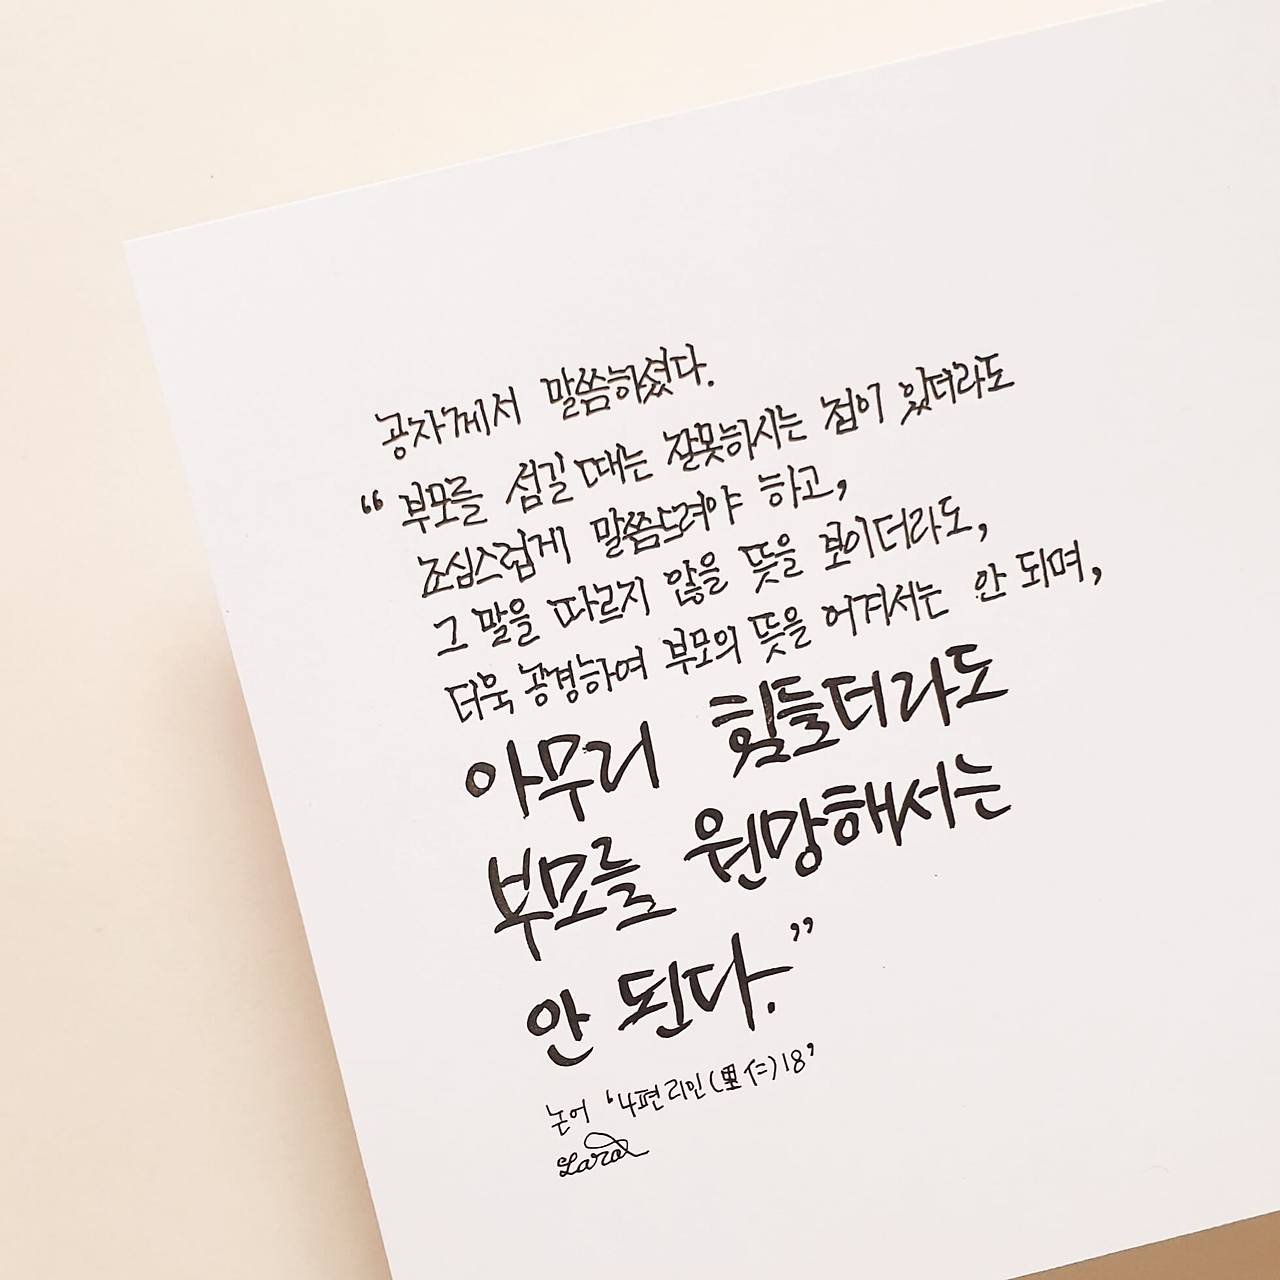 공자께서 말씀하셨다.
“부모를 섬길 때는 잘못하시는 점이 있더라도
조심스럽게 말씀드려야 하고,
그 말을 따르지 않을 뜻을 보이더라도,
더욱 공경하여 부모의 뜻을 어겨서는 안 되며,
아무리 힘들더라도
부모를 원망해서는
안 된다.”
논어 ‘4편 리인(里仁)18’